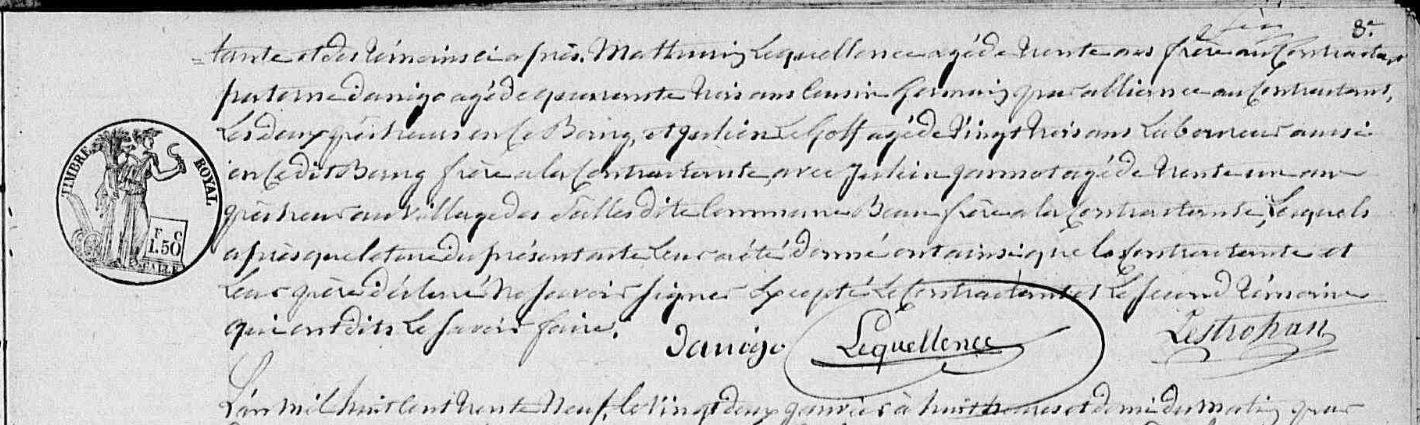 8e
tante et des témoins ci après. Mathurin Lequellenec agé de trente ans frère au Contractant
paterne danigo agé de quarante trois ans Cousin Germain par alliance au Contractant,
les deux pêcheurs en ce Bourg, et Julien Le Goff agé de Vingt trois ans Laboureur aussi
en Ce dit Bourg frère a la Contractante, avec Julien agé de trente un an
pêcheur au Village des Salles dite Commune Beau frère a la Contractante, Lesquels
après que lecture du présent acte Leur a été donné ont ainsi que la Contractante et
Leur père déclaré Ne Savoir Signer Excepté Le Contractant et Le Second Témoin
qui ont dits Le Savoir faire.
danigo Lequellenec Lestrohan
L'an Mil huit Cent trente Neuf, le Vingt deux janvier à huit heures et demi du matin par
TIMBRE ROYAL
F C
1.50